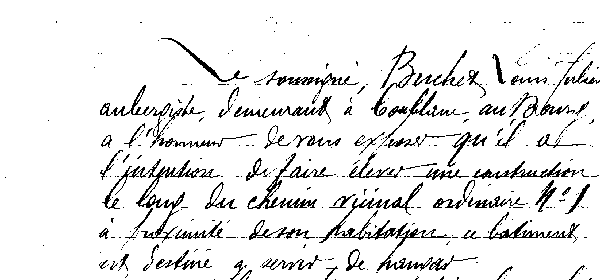 Le soussigné, Berchet Louis Julien
aubergiste, demeurant à Coublanc, au Bourg,
a l'honneur de vous exposer qu'il a
l'intention de faire élever une construction
le long du chemin vicinal ordinaire N° 1
à proximité de son habitation, ce batiment
est destiné à servir de hangar